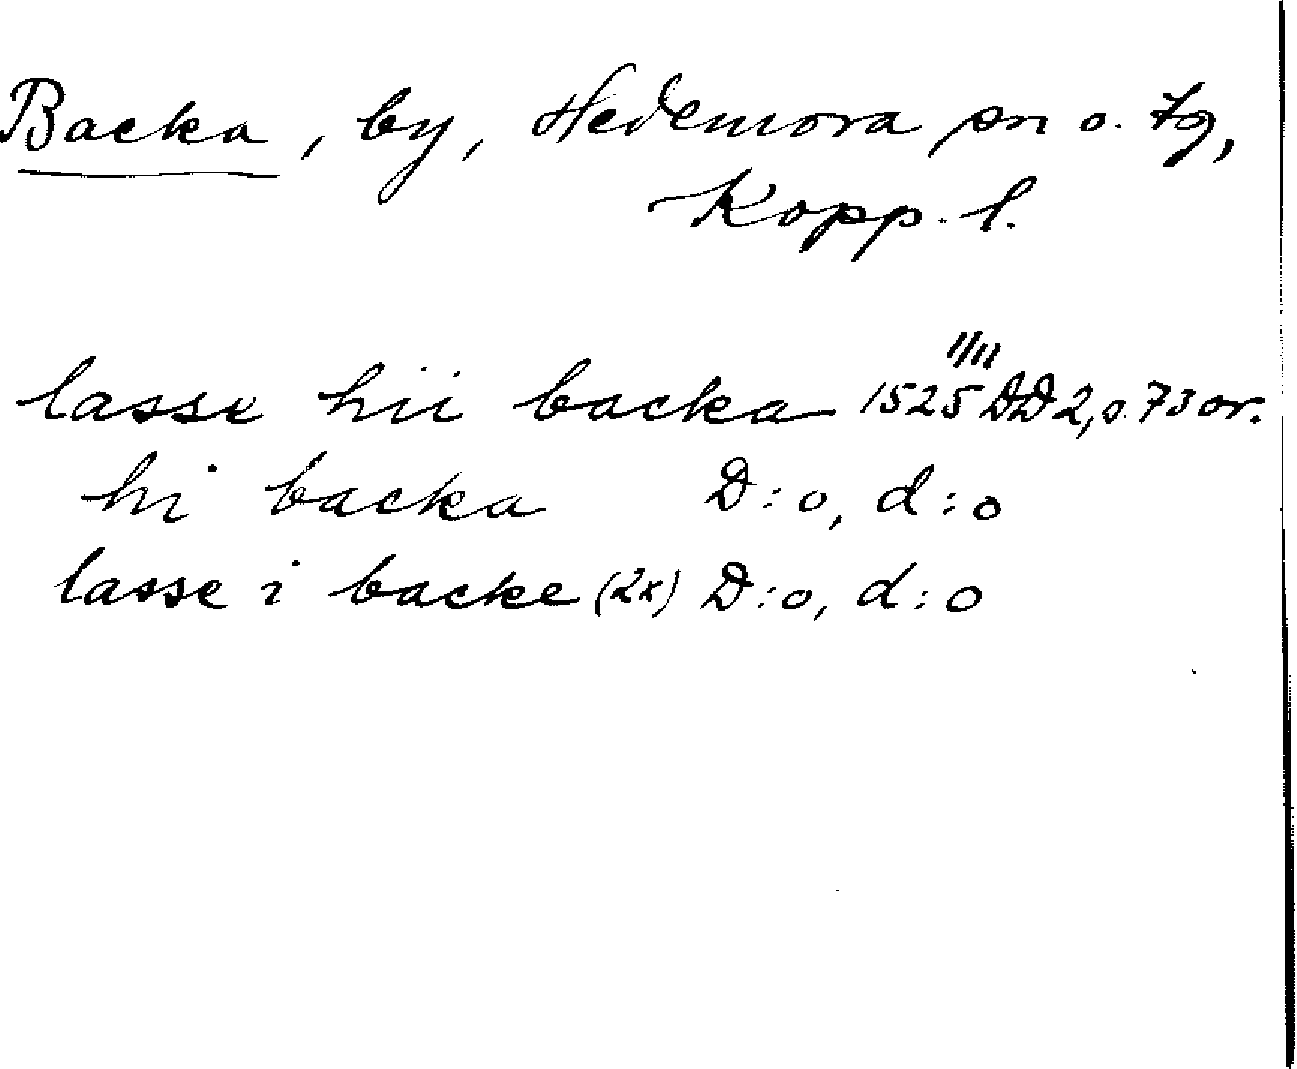 Backa, by, Hedemora sn o. tg,
Kopp. l.
lasse hii backa 1525 11/11 DD 2, s. 73 or.
hi backa D:o, d:o
lasse i backe (2x) D:o, d:o